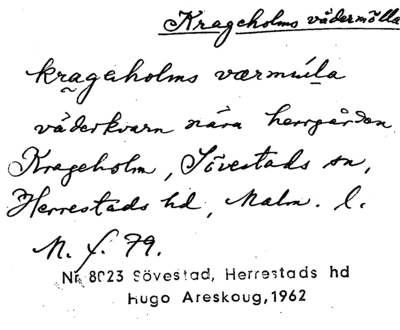 Krageholms vädermölla
krageholms værmúla
väderkvarn nära herrgården
Krageholm, Sövestads sn,
Herrestads hd, Malm. l.
M. f. 79.
Nr 8023 Sövestad, Herrestads hd
Hugo Areskoug, 1962